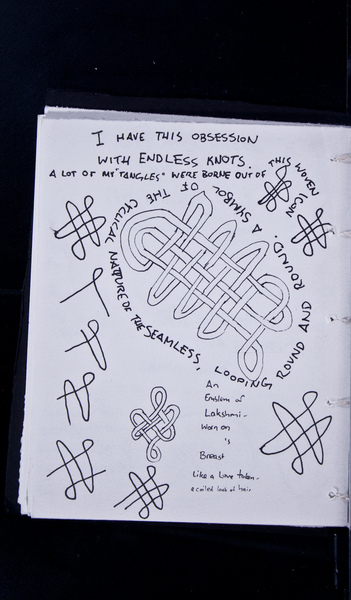 I HAVE THIS OBSESSION
WITH ENDLESS KNOTS.
A LOT OF MY "TANGLES" WERE BORNE OUT OF
THIS WOVEN
ICON
A SYMBOL OF THE CYCLICAL NATURE OF THE SEAMLESS, LOOPING ROUND AND ROUND.
An
Emblem of
Lakshmi -
Worn on
's
Breast
Like a Love token -
a coiled lock of hair